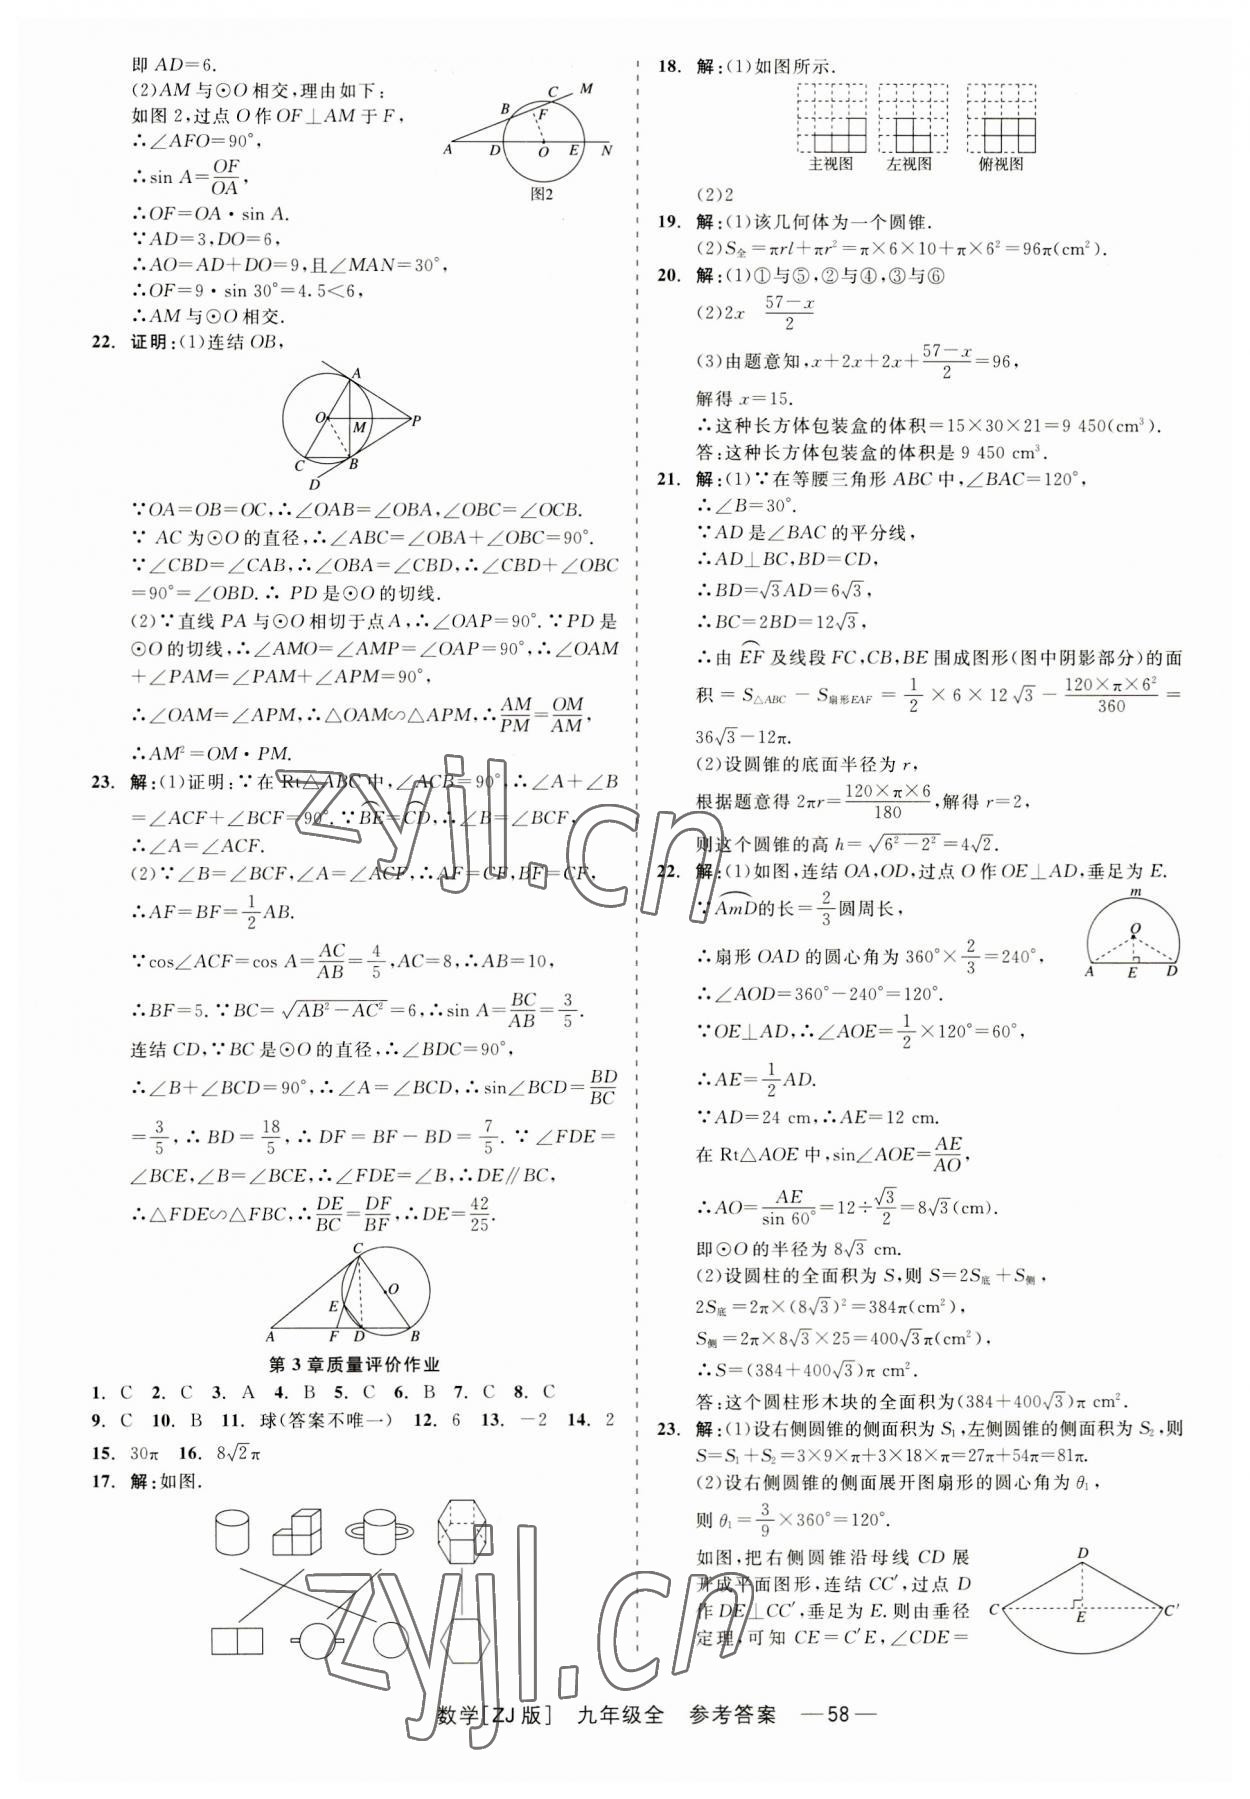 即 AD=6.
(2)AM 与⊙O 相交,理由如下:
如图 2,过点 O 作 OF⊥AM 于 F,
∴∠AFO=90°,
∴sin A=OF/OA,
∴OF=OA·sin A.
∵AD=3,DO=6,
∴AO=AD+DO=9,且∠MAN=30°,
∴OF=9·sin 30°=4.5<6,
∴AM 与⊙O 相交.
A B C M F D O E N
图2
22. 证明:(1)连结 OB,
A O M P C B D
∵OA=OB=OC,∴∠OAB=∠OBA,∠OBC=∠OCB.
∵ AC 为⊙O 的直径,∴∠ABC=∠OBA+∠OBC=90°.
∵∠CBD=∠CAB,∴∠OBA=∠CBD,∴∠CBD+∠OBC
=90°=∠OBD.∴ PD 是⊙O 的切线.
(2)∵直线 PA 与⊙O 相切于点 A,∴∠OAP=90°.∵PD 是
⊙O 的切线,∴∠AMO=∠AMP=∠OAP=90°,∴∠OAM
+∠PAM=∠PAM+∠APM=90°,
∴∠OAM=∠APM,∴△OAM∽△APM,∴AM/PM=OM/AM,
∴AM²=OM·PM.
23. 解:(1)证明:∵在 Rt△ABC 中,∠ACB=90°,∴∠A+∠B
=∠ACF+∠BCF=90°.∵BE⌒=CD⌒,∴∠B=∠BCF,
∴∠A=∠ACF.
(2)∵∠B=∠BCF,∠A=∠ACF,∴AF=CF,BF=CF.
∴AF=BF=1/2 AB.
∵cos∠ACF=cos A=AC/AB=4/5,AC=8,∴AB=10,
∴BF=5.∵BC=√(AB²-AC²)=6,∴sin A=BC/AB=3/5.
连结 CD,∵BC 是⊙O 的直径,∴∠BDC=90°,
∴∠B+∠BCD=90°,∴∠A=∠BCD,∴sin∠BCD=BD/BC
=3/5,∴BD=18/5,∴DF=BF-BD=7/5.∵∠FDE=
∠BCE,∠B=∠BCE,∴∠FDE=∠B,∴DE∥BC,
∴△FDE∽△FBC,∴DE/BC=DF/BF,∴DE=42/25.
C O E A F D B
第 3 章质量评价作业
1. C 2. C 3. A 4. B 5. C 6. B 7. C 8. C
9. C 10. B 11. 球(答案不唯一) 12. 6 13. -2 14. 2
15. 30π 16. 8√2π
17. 解:如图.
18. 解:(1)如图所示.
主视图 左视图 俯视图
(2)2
19. 解:(1)该几何体为一个圆锥.
(2)S全=πrl+πr²=π×6×10+π×6²=96π(cm²).
20. 解:(1)①与⑤,②与④,③与⑥
(2)2x (57-x)/2
(3)由题意知,x+2x+2x+(57-x)/2=96,
解得 x=15.
∴这种长方体包装盒的体积=15×30×21=9 450(cm³).
答:这种长方体包装盒的体积是 9 450 cm³.
21. 解:(1)∵在等腰三角形 ABC 中,∠BAC=120°,
∴∠B=30°.
∵AD 是∠BAC 的平分线,
∴AD⊥BC,BD=CD,
∴BD=√3AD=6√3,
∴BC=2BD=12√3,
∴由 EF⌒ 及线段 FC,CB,BE 围成图形(图中阴影部分)的面
积=S△ABC-S扇形EAF=1/2×6×12√3-(120×π×6²)/360=
36√3-12π.
(2)设圆锥的底面半径为 r,
根据题意得 2πr=(120×π×6)/180,解得 r=2,
则这个圆锥的高 h=√(6²-2²)=4√2.
22. 解:(1)如图,连结 OA,OD,过点 O 作 OE⊥AD,垂足为 E.
∵AmD⌒的长=2/3圆周长,
∴扇形 OAD 的圆心角为 360°×2/3=240°,
∴∠AOD=360°-240°=120°.
∵OE⊥AD,∴∠AOE=1/2×120°=60°,
∴AE=1/2 AD.
∵AD=24 cm,∴AE=12 cm.
在 Rt△AOE 中,sin∠AOE=AE/AO,
∴AO=AE/sin 60°=12÷√3/2=8√3(cm).
即⊙O 的半径为 8√3 cm.
m O A E D
(2)设圆柱的全面积为 S,则 S=2S底+S侧,
2S底=2π×(8√3)²=384π(cm²),
S侧=2π×8√3×25=400√3π(cm²),
∴S=(384+400√3)π cm².
答:这个圆柱形木块的全面积为(384+400√3)π cm².
23. 解:(1)设右侧圆锥的侧面积为 S₁,左侧圆锥的侧面积为 S₂,则
S=S₁+S₂=3×9×π+3×18×π=27π+54π=81π.
(2)设右侧圆锥的侧面展开图扇形的圆心角为 θ₁,
则 θ₁=3/9×360°=120°.
如图,把右侧圆锥沿母线 CD 展
开成平面图形,连结 CC′,过点 D
作 DE⊥CC′,垂足为 E.则由垂径
定理,可知 CE=C′E,∠CDE=
D C E C′
数学[ZJ版] 九年级全 参考答案 —58—
zyjl.cn
zyjl.cn